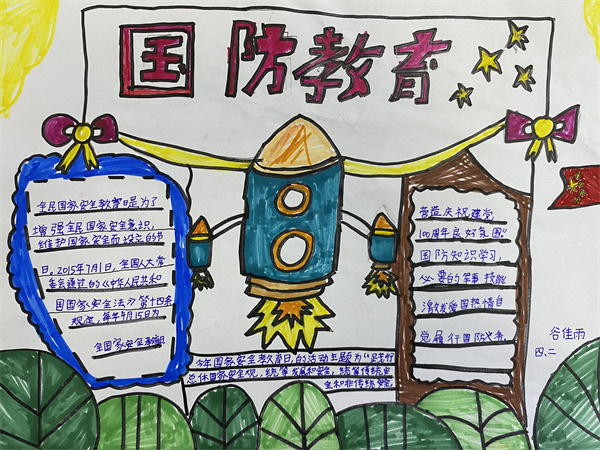 国防教育
全民国家安全教育日是为了
增强全民国家安全意识,
维护国家安全而设立的节
日。2015年7月1日,全国人大常
委会通过的《中华人民共和
国国家安全法》第十四条
规定,每年4月15日为
全国家安全教育日
营造庆祝建党
100周年良好氛围"
国防知识学习,
必要的军事技能
激发爱国热情自
觉履行国防义务,
谷佳雨
四、二
今年国家安全教育日,的活动主题为"践行
总体国家安全观,统筹发展和安全,统筹传统安
全和非传统安全,